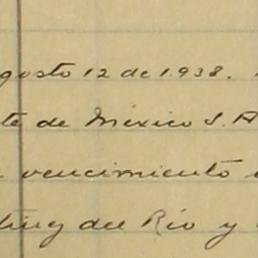 agosto 12 de 1938.
te de México S. A
vencimiento
del Río y